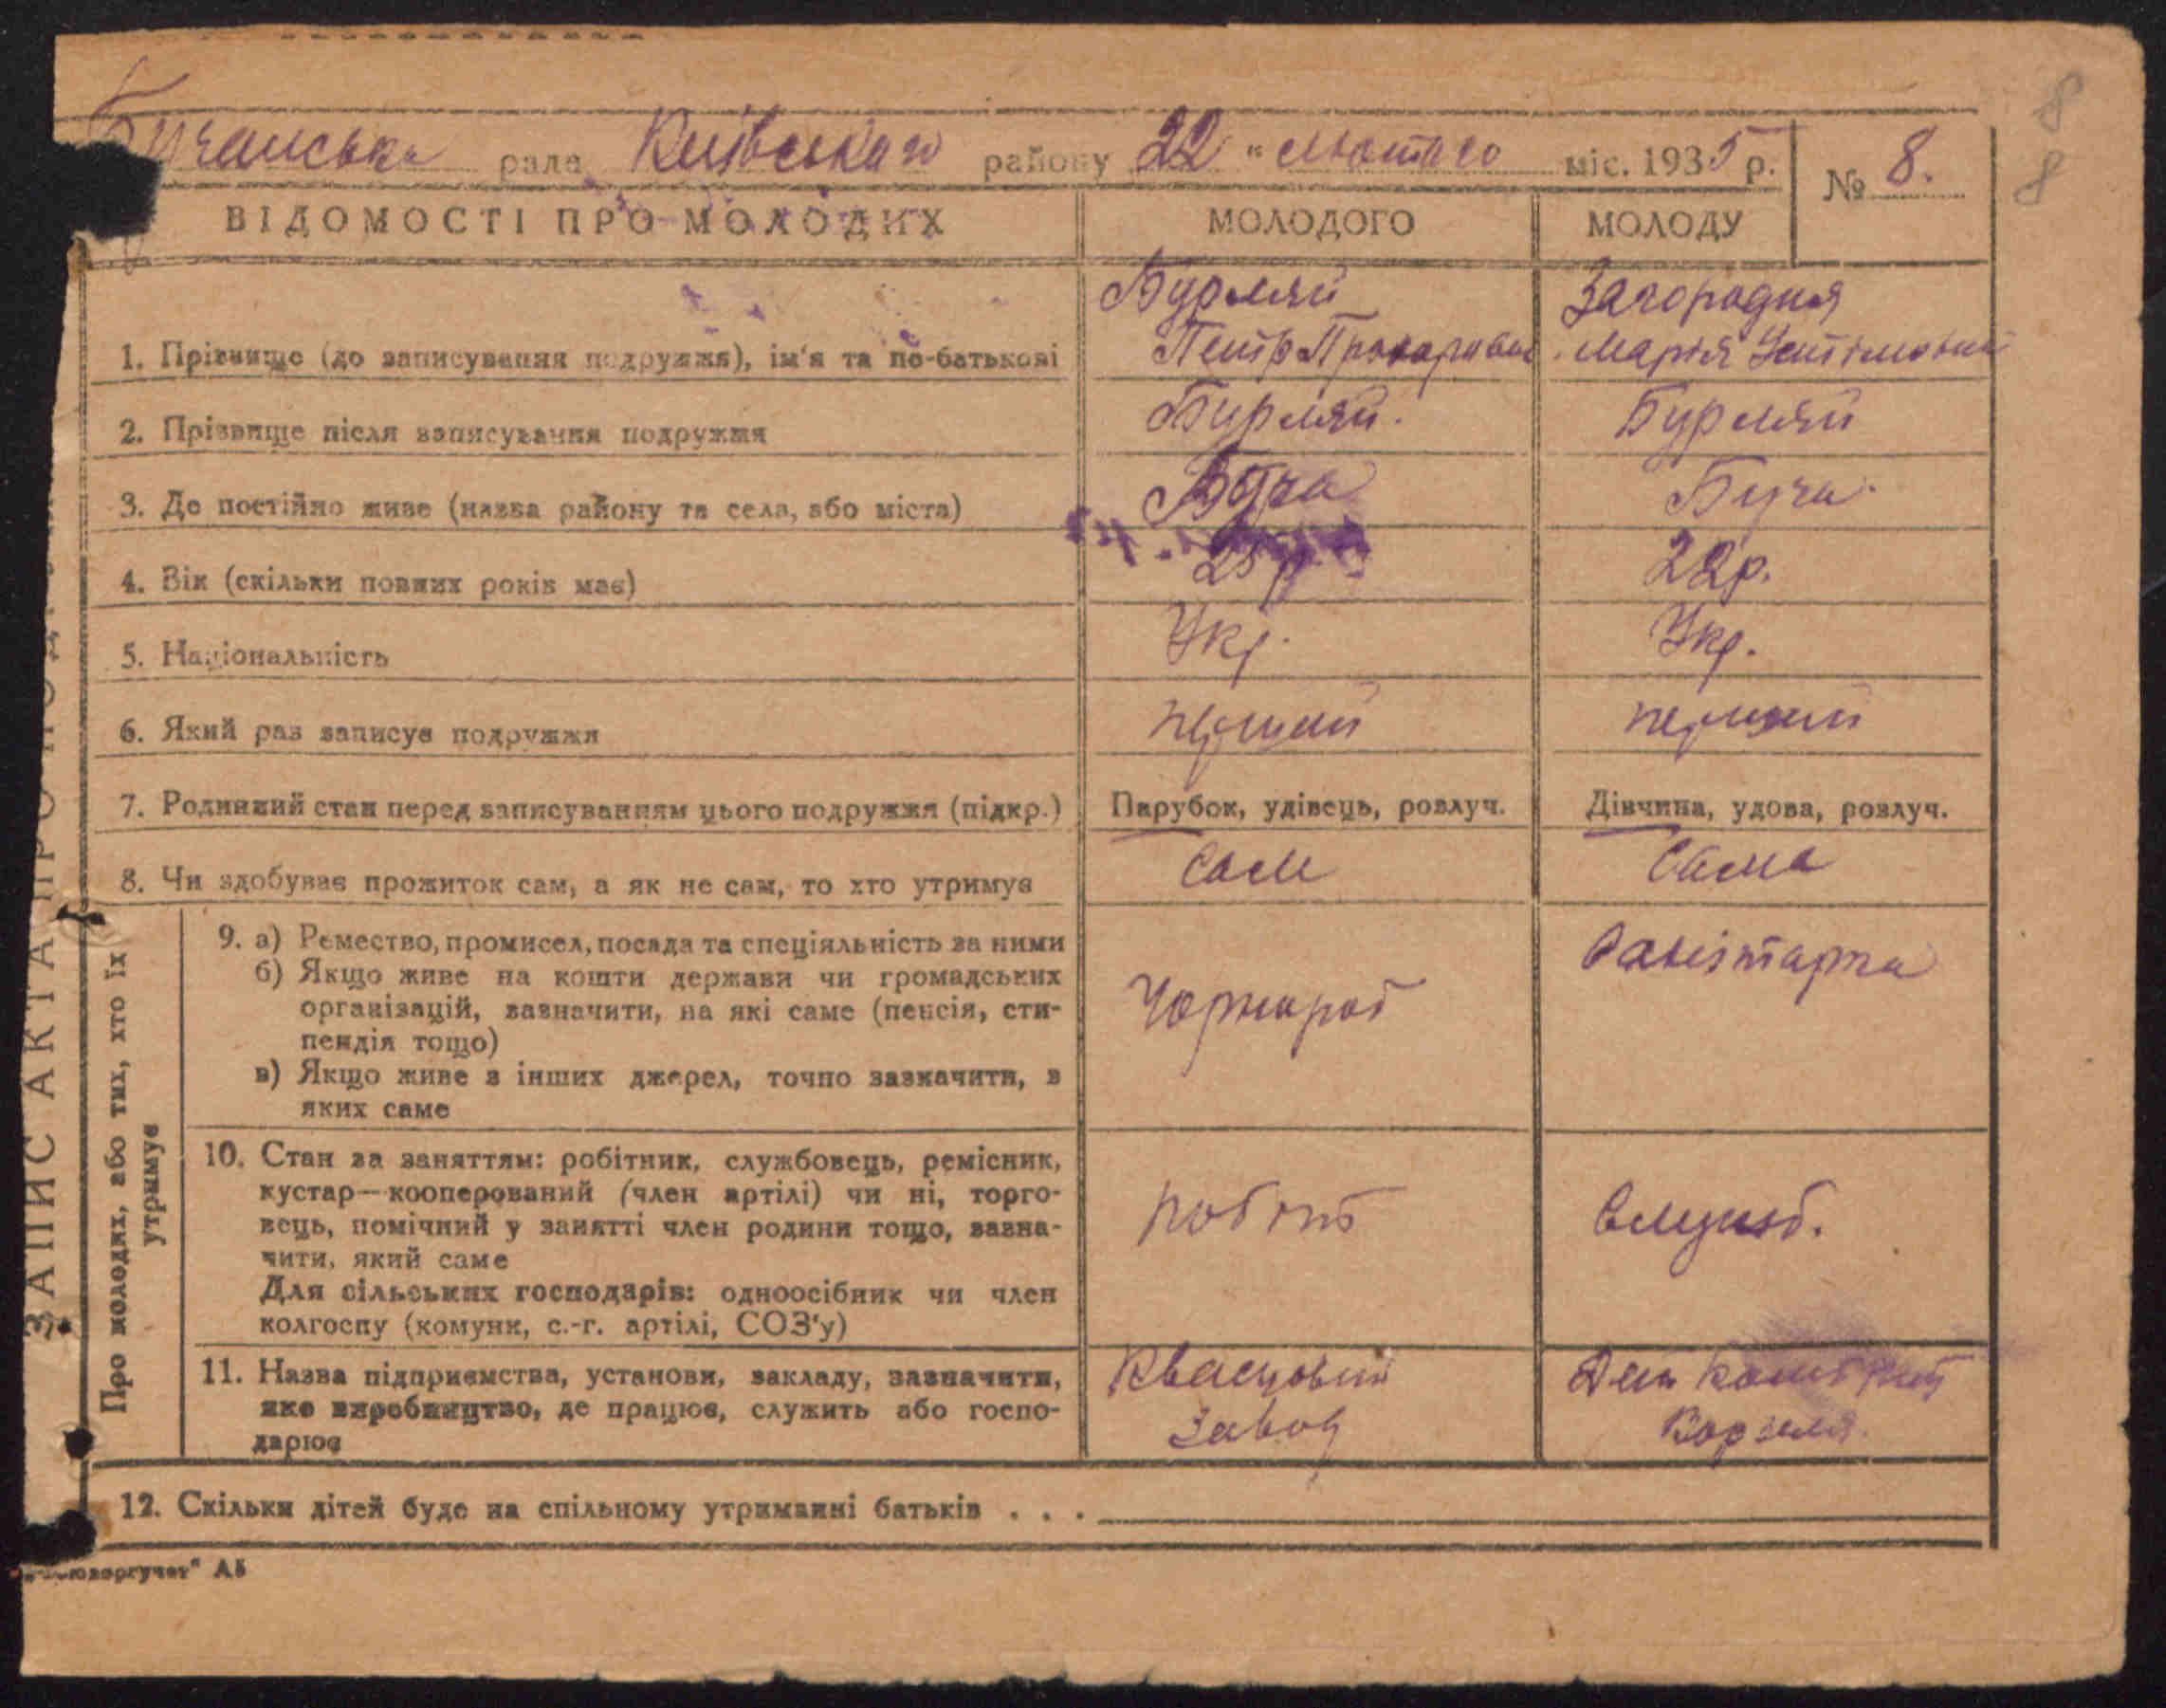 8
Бучанська рада Київського району 22 " лютого міс. 1935 р.
№ 8.
8
ВІДОМОСТІ ПРО МОЛОДИХ
МОЛОДОГО
МОЛОДУ
1. Прізвище (до записування подружжя), ім'я та по-батькові
Бурляй
Петр
Загородня
Марія
2. Прізвище після записування подружжя
Бурляй.
Бурляй
3. Де постійно живе (назва району та села, або міста)
Буча
Буча.
4. Вік (скільки повних років має)
25 р
22р.
5. Національність
Укр.
Укр.
6. Який раз записує подружжя
перший
перший
7. Родинний стан перед записуванням цього подружжя (підкр.)
Парубок, удівець, розлуч.
Дівчина, удова, розлуч.
8. Чи здобуває прожиток сам, а як не сам, то хто утримує
Сам
Сама
ЗАПИС АКТА ПРО
Про молодих, або тих, хто їх
утримує
9. а) Ремество, промисел, посада та спеціяльність за ними
б) Якщо живе на кошти держави чи громадських
організацій, зазначити, на які саме (пенсія, сти-
пендія тощо)
в) Якщо живе з інших джерел, точно зазначити, з
яких саме
Чорнароб
Санітарка
10. Стан за заняттям: робітник, службовець, ремісник,
кустар—кооперований (член артілі) чи ні, торго-
вець, помічний у занятті член родини тощо, зазна-
чити, який саме
Для сільських господарів: одноосібник чи член
колгоспу (комуни, с.-г. артілі, СОЗ'у)
робітн
Служб.
11. Назва підприємства, установи, закладу, зазначити,
яке виробництво, де працює, служить або госпо-
дарює
завод
Ворзеля.
12. Скільки дітей буде на спільному утриманні батьків . . .
А5